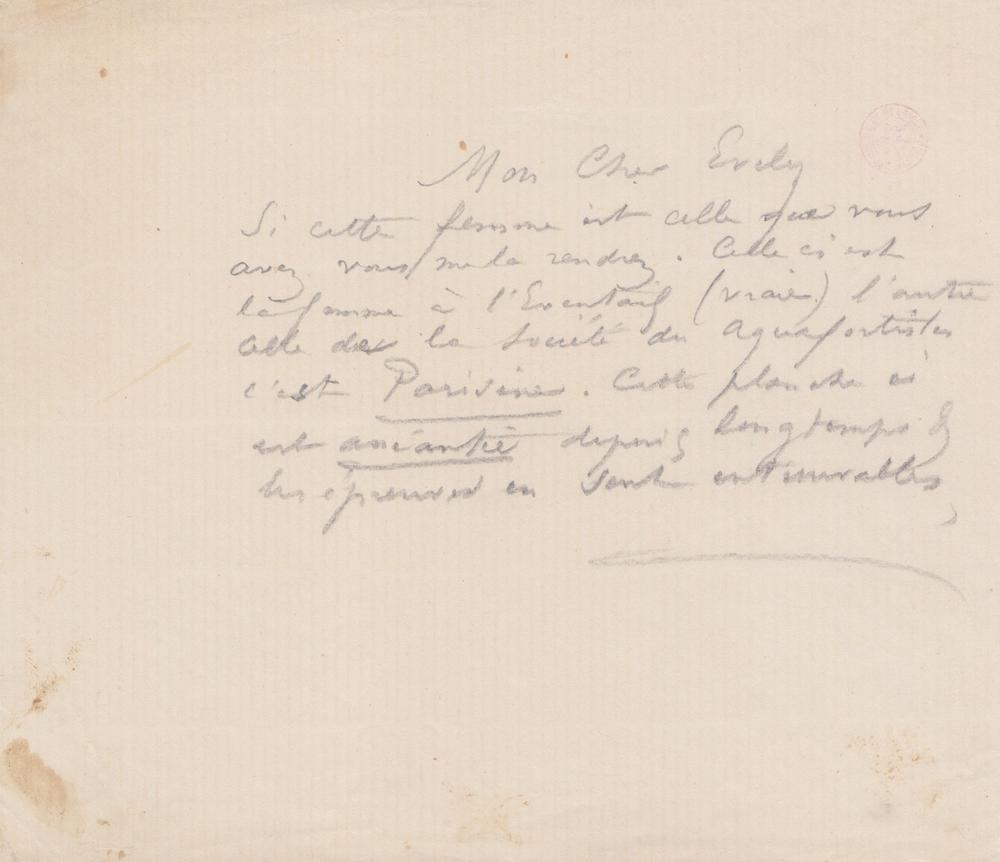 Mon Cher Evely
Si cette femme est celle que vous
avez vous me la rendrez. Celle ci est
la femme à l'Eventail (vraie) l'autre
celle de la Société des Aquafortistes
c'est Parisine. Cette planche ci
est anéantie depuis longtemps &
les épreuves en sont introuvables,